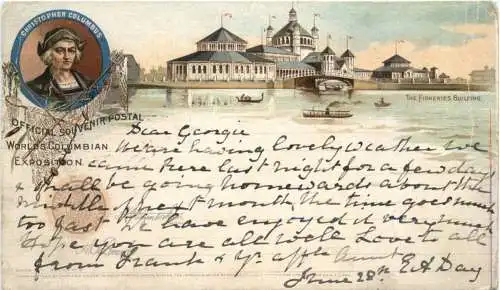 CHRISTOPHER COLUMBUS
THE FISHERIES BUILDING.
OFFICIAL SOUVENIR POSTAL
WORLD'S COLUMBIAN
EXPOSITION
Dear Georgie
We are having lovely weather we
came here last night for a few days
& shall be going homewards about the
middle of next month, the time goes much
too fast We have enjoyed it very much
hope you are all well Love to all
from Frank & yr affte Aunt
June 28th E A Day